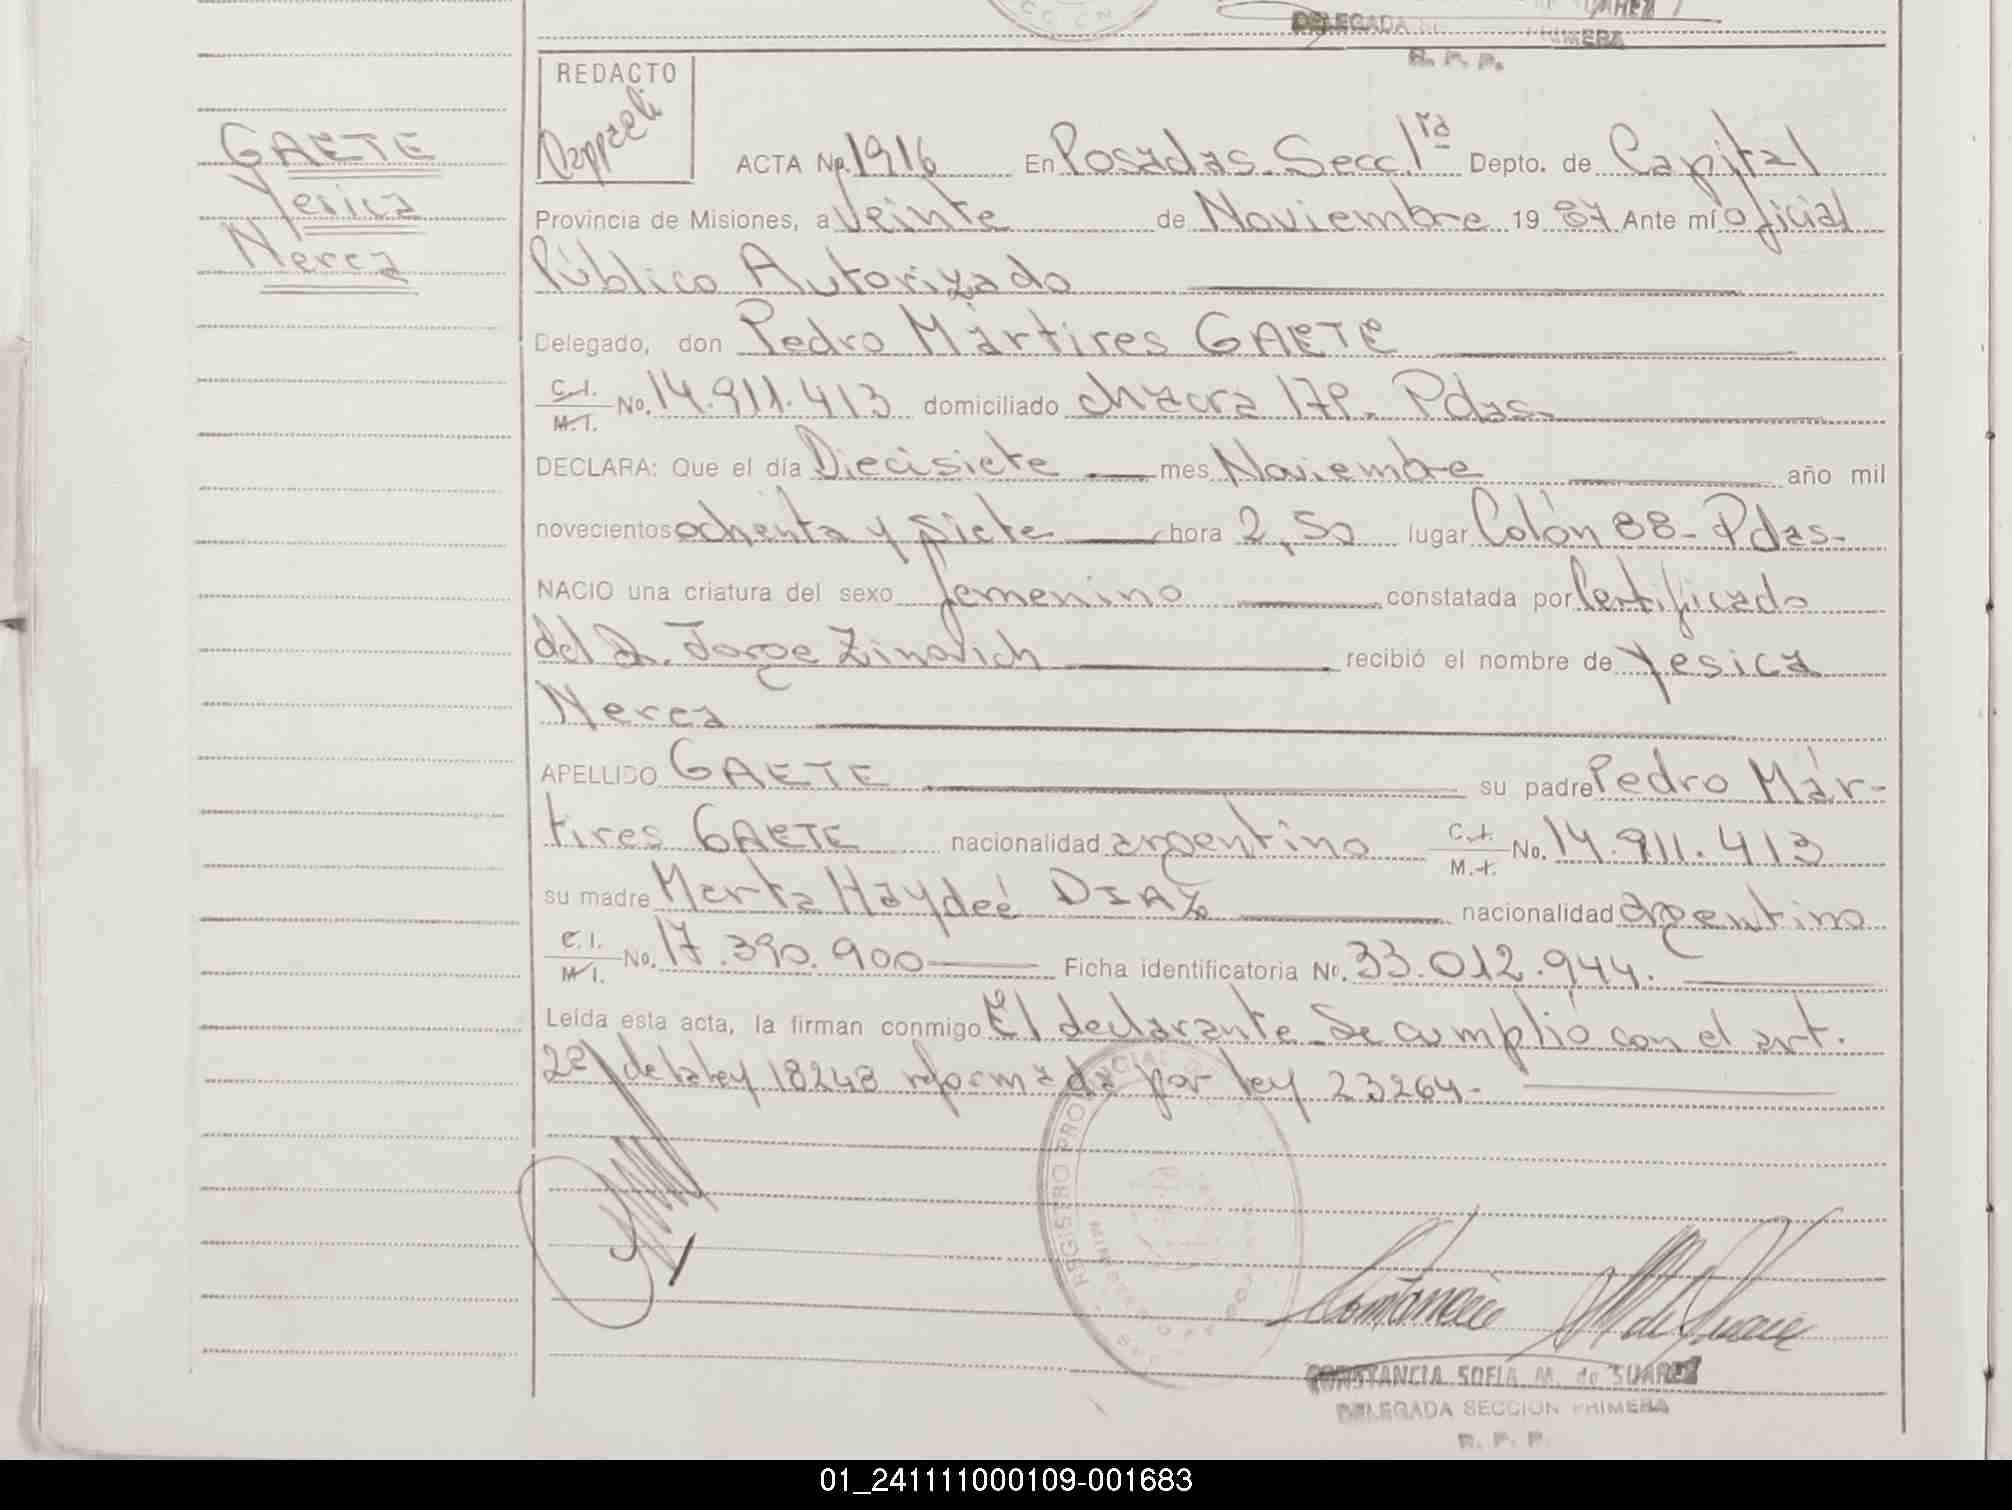 DELEGADA
PRIMERA
R. P. P.
REDACTO
GAETE
Yesica
Nerea
ACTA No. 1916 En Posadas. Secc. 1ra Depto. de Capital
Provincia de Misiones, a Veinte de Noviembre 1987 Ante mí Oficial
Público Autorizado
Delegado, don Pedro Mártires GAETE
C.I. M.I. No. 14.911.413 domiciliado chacra 179. Pdas.
DECLARA: Que el día Diecisiete mes Noviembre año mil
novecientos ochenta y siete hora 2,50 lugar Colón 88- Pdas-
NACIO una criatura del sexo femenino constatada por Certificado
del Dr. Jorge Zinovich recibió el nombre de Yesica
Nerea
APELLIDO GAETE su padre Pedro Már-
tires GAETE nacionalidad argentino C.I. M.I. No. 14.911.413
su madre Marta Haydeé DIAZ nacionalidad argentino
C.I. M.I. No. 17.390.900 Ficha identificatoria No. 33.012.944.
Leída esta acta, la firman conmigo El declarante. Se cumplió con el art.
2º de la ley 18248 reformada por ley 23264-
REGISTRO PROVINCIAL
CONSTANCIA SOFIA M. de SUAREZ
DELEGADA SECCION PRIMERA
R. P. P.
01_241111000109-001683